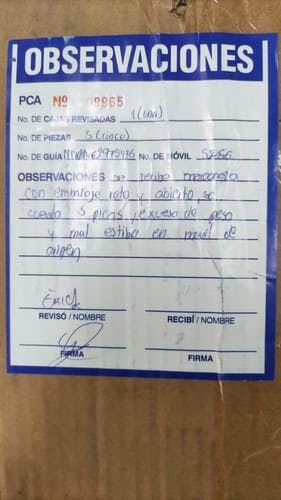 OBSERVACIONES
PCA Nº 965
No. DE CAJAS REVISADAS 1 (una)
No. DE PIEZAS 5 (cinco)
No. DE GUÍA No. DE MÓVIL
OBSERVACIONES se recibe mercancia
con embalaje roto y abierto, se
cuenta 5 piezas, exceso de peso
y mal estiba en movil de
origen
Erick
REVISÓ / NOMBRE RECIBÍ / NOMBRE
FIRMA FIRMA